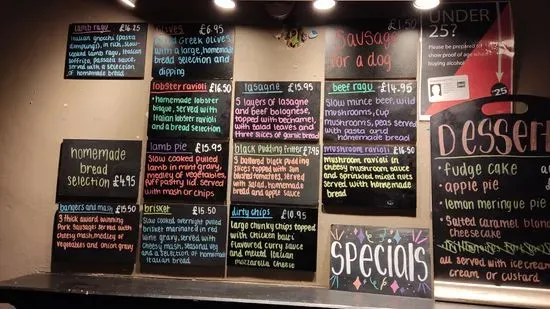 lamb ragu £16.25
Italian gnochi (pasta
dumplings), in rich, slow
cooked lamb ragu, Italian
soffrito, passata sauce,
served with a selection
of homemade bread
olives £6.95
Greek olives
with a large, homemade
bread selection and
dipping
£1.50
Sausage
for a dog
UNDER
25?
Please be prepared to
show proof of age when
buying alcohol
25
lobster ravioli £16.50
homemade lobster
bisque, served with
Italian lobster ravioli
and a bread selection
lasagne £15.95
5 layers of lasagne
and beef bolognese,
topped with bechamel,
with salad leaves and
three slices of garlic bread
beef ragu £14.95
Slow mince beef, wild
mushrooms, cup
mushrooms, peas served
with pasta and
homemade bread
homemade
bread
selection £4.95
lamb pie £15.95
Slow cooked pulled
lamb in mint gravy
medley of vegetables,
puff pastry lid, served
with mash or chips
black pudding fritter £7.95
3 battered black pudding
slices topped with sun
dried tomatoes, served
with salad, homemade
bread and apple sauce
mushroom ravioli £16.50
Mushroom ravioli in
cheesy mushroom sauce
and sprinkled mixed nuts
served with homemade
bread
bangers and mash £15.50
3 thick award winning
Pork sausages served with
cheesy mash, medley of
vegetables and onion gravy
brisket £15.50
Slow cooked overnight pulled
brisket marinated in red
wine gravy, served with
cheesy mash, seasonal veg
and a selection of homemade
Italian bread
dirty chips £10.95
Large chunky chips topped
with Chicken balti
flavoured curry sauce
and melted Italian
mozzarella cheese
Specials
Dessert
• fudge cake
• apple pie
• lemon meringue pie
• Salted caramel
cheesecake
all served with ice cream
cream or custard